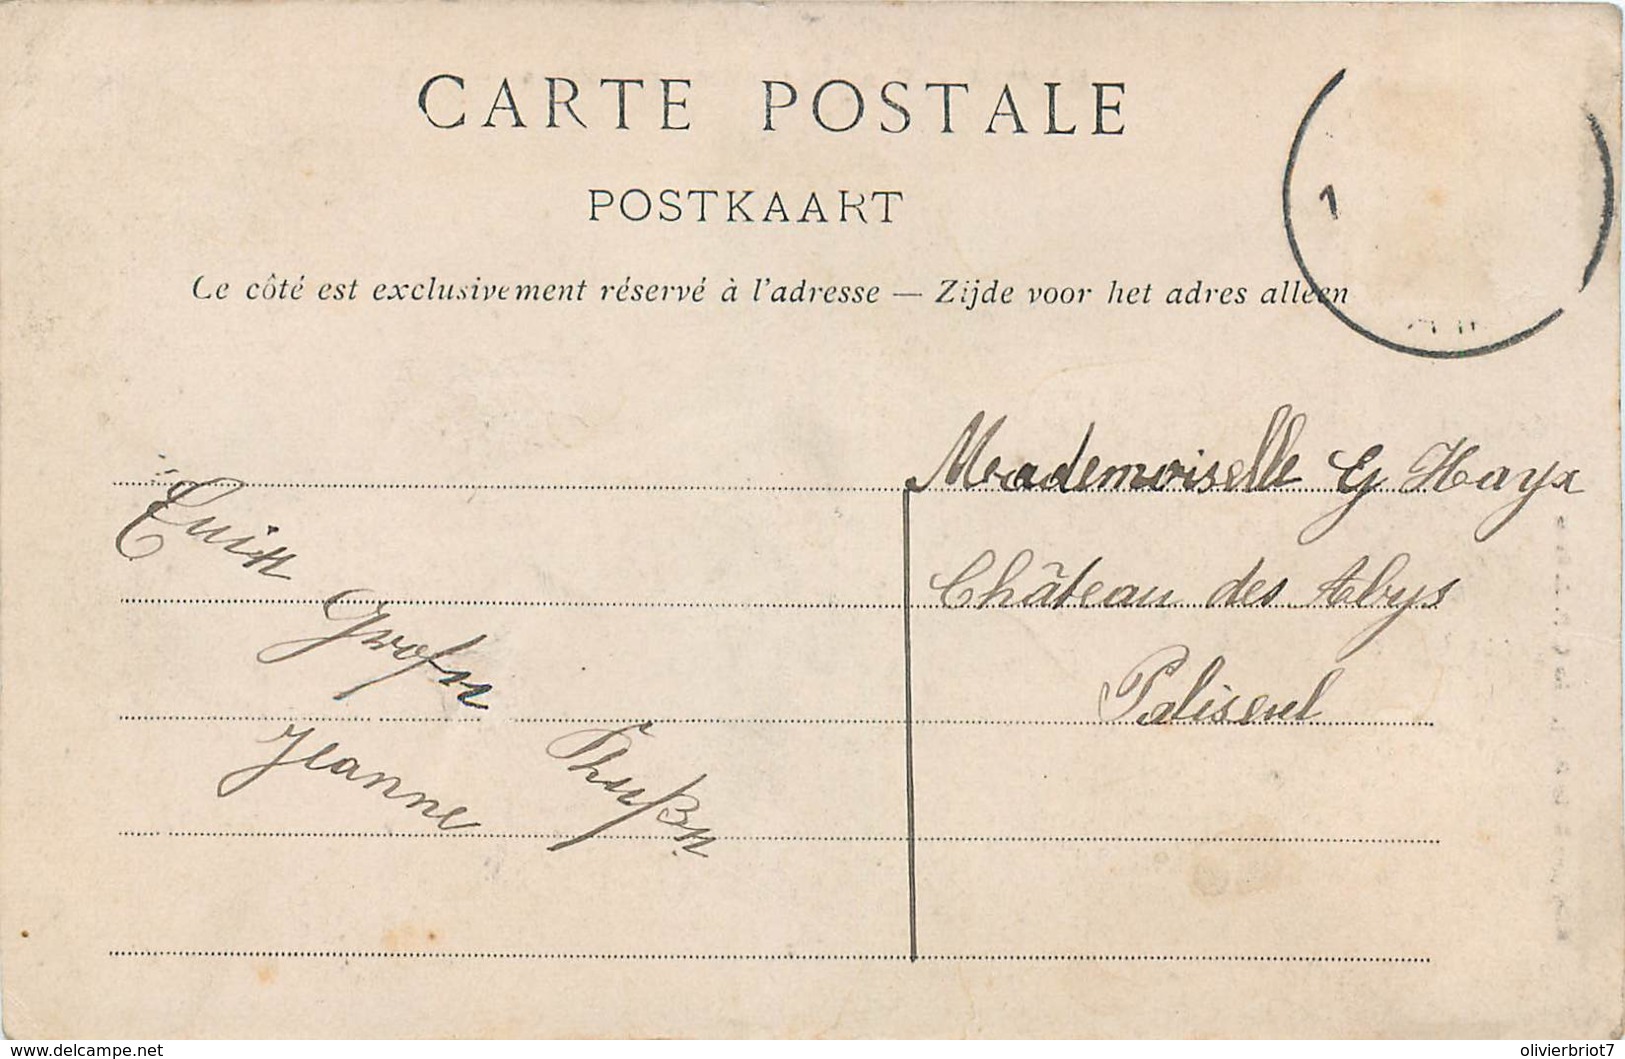 CARTE POSTALE
POSTKAART
Ce côté est exclusivement réservé à l'adresse — Zijde voor het adres alleen
1
Mademoiselle G Hayx
Château des Abys
Paliseul
Jeanne
www.delcampe.net
olivierbriot7